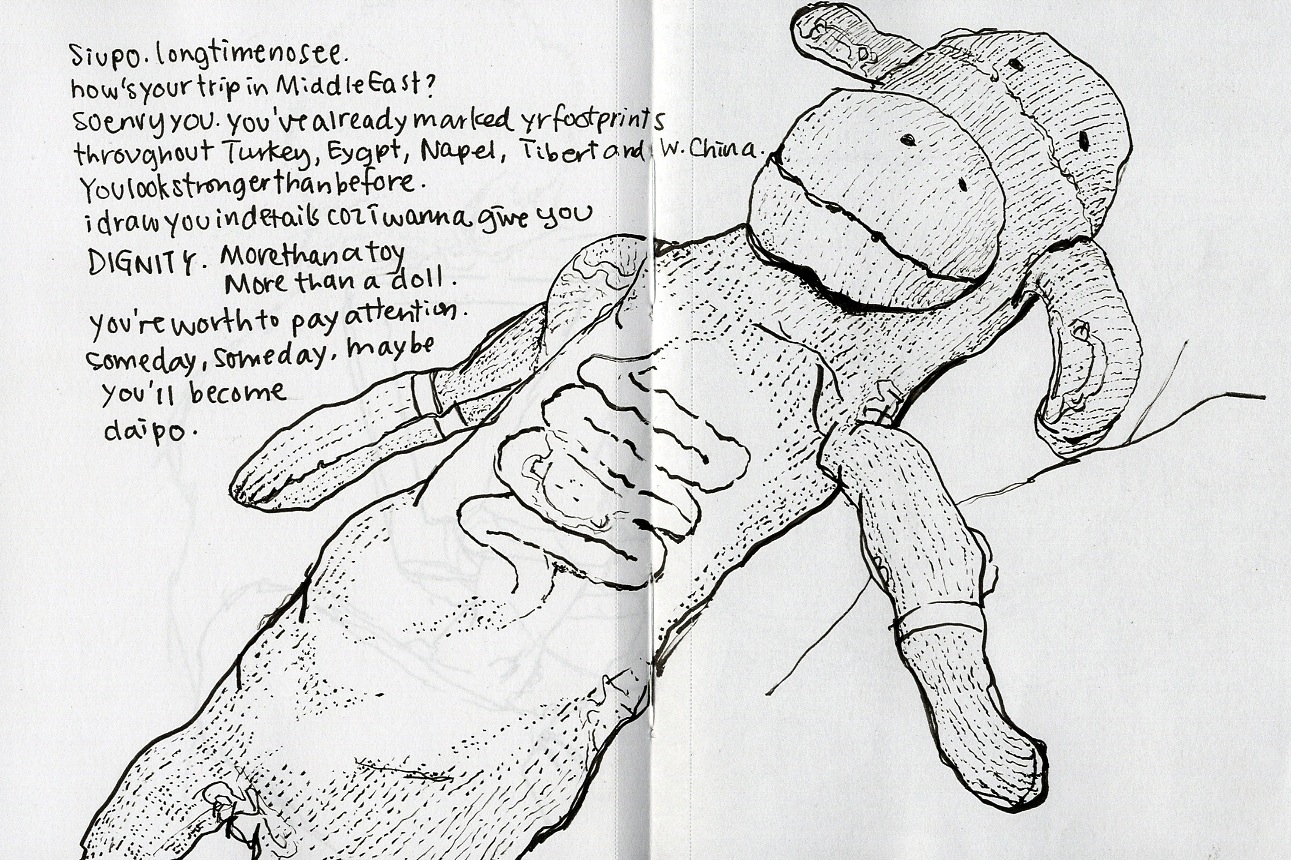 Siupo. longtimenosee.
how's your trip in Middle East?
so envy you. you've already marked yr footprints
throughout Turkey, Eygpt, Napel, Tibert and W. China.
You look stronger than before.
i draw you in details coz i wanna give you
DIGNITY. More than a toy
More than a doll.
you're worth to pay attention.
someday, someday, maybe
you'll become
daipo.